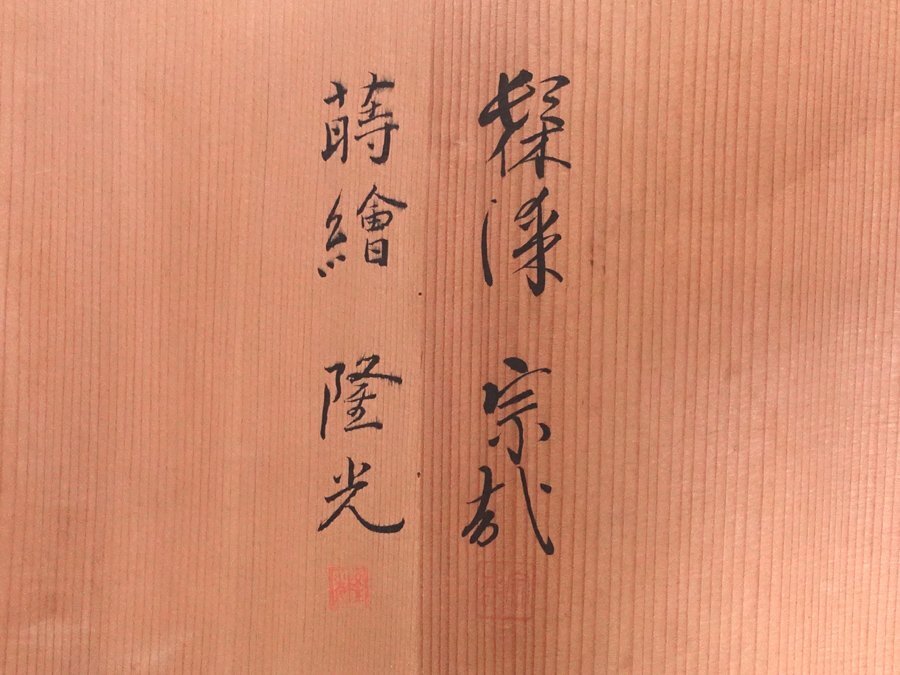 髹漆 宗哉
蒔繪 隆光